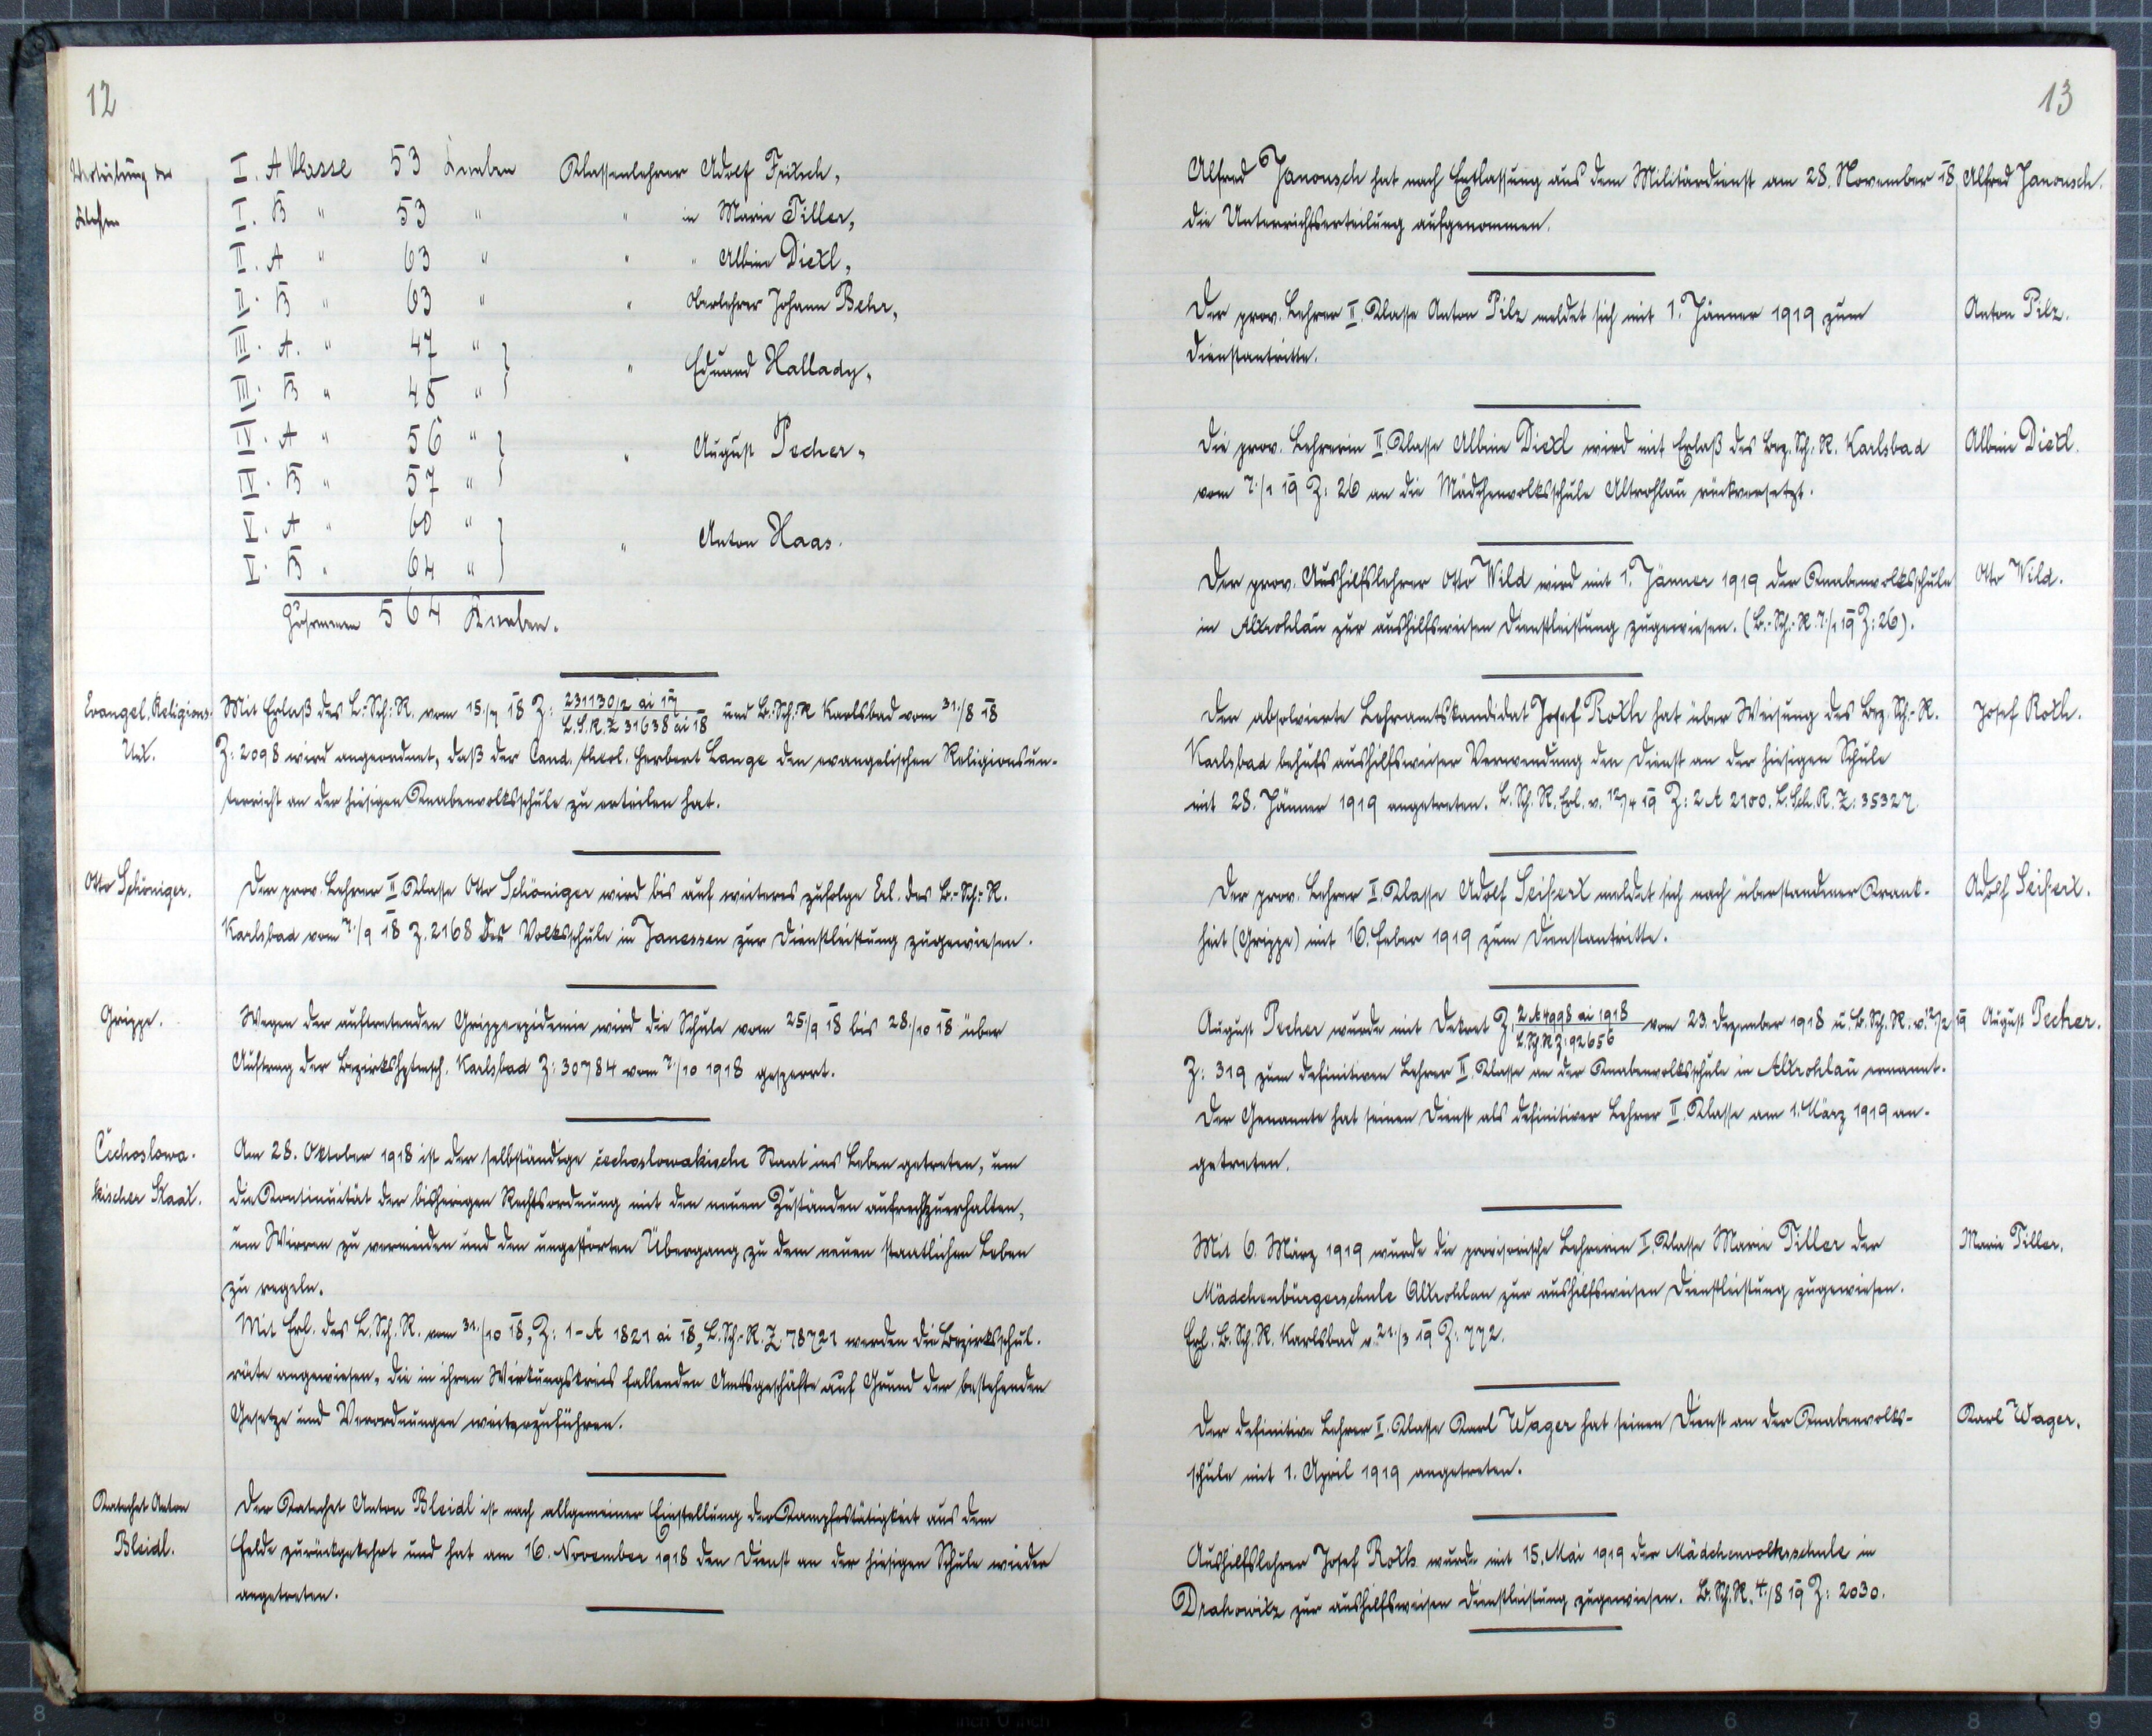 12
Verteilung der
Klassen
I. A Klasse 53 Knaben Klassenlehrer Adolf Fritsch,
I. B " 53 " " in Marie Tiller,
II. A " 63 " " " Albine Dietl,
II. B " 63 " " Oberlehrer Johann Behr,
III. A. " 47 "
" Eduard Hallady,
III. B " 48 "
IV. A " 56 "
" August Pecher,
IV. B " 57 "
V. A " 60 "
" Anton Haas.
V. B " 64 "
Zusammen 564 Knaben.
Evangel. Religions-
Unt.
Mit Erlaß des L.-Sch.-R. vom 15./7 18 Z: 231130/2 ai 17 / L.S.R.Z 31638 ai 18 und B.-Sch.-R Karlsbad vom 31./8 18
Z: 2098 wird angeordnet, daß der Cand. theol. Herbert Lange den evangelischen Religionsun-
terricht an der hiesigen Knabenvolksschule zu erteilen hat.
Otto Schöniger.
Der prov. Lehrer II. Klasse Otto Schöniger wird bis auf weiteres zufolge Erl. des B.-Sch.-R.
Karlsbad vom 7./9 18 Z. 2168 der Volksschule in Janessen zur Dienstleistung zugewiesen.
Grippe.
Wegen der auftretenden Grippeepidemie wird die Schule vom 25./9 18 bis 28./10 18 über
Auftrag der Bezirkshptmsch. Karlsbad Z: 30784 vom 7./10 1918 gesperrt.
Čechoslowa-
kischer Staat.
Am 28. Oktober 1918 ist der selbständige čechoslowakische Staat ins Leben getreten, um
die Kontinuität der bisherigen Rechtsordnung mit den neuen Zuständen aufrechtzuerhalten,
um Wirren zu vermeiden und den ungestörten Übergang zu dem neuen staatlichen Leben
zu regeln.
Mit Erl. des L. Sch. R. vom 31./10 18, Z: 1-A 1821 ai 18, L. Sch.-R. Z. 78721 werden die Bezirksschul-
räte angewiesen, die in ihren Wirkungskreis fallenden Amtsgeschäfte auf Grund der bestehenden
Gesetze und Verordnungen weiterzuführen.
Katechet Anton
Bleidl.
Der Katechet Anton Bleidl ist nach allgemeiner Einstellung der Kampfestätigkeit aus dem
Felde zurückgekehrt und hat am 16. November 1918 den Dienst an der hiesigen Schule wieder
angetreten.
13
Alfred Janousch hat nach Entlassung aus dem Militärdienst am 28. November 18 Alfred Janousch.
die Unterrichtserteilung aufgenommen.
Der prov. Lehrer II. Klasse Anton Pilz meldet sich mit 1. Jänner 1919 zum Anton Pilz.
Dienstantritte.
Die prov. Lehrerin II. Klasse Albine Dietl wird mit Erlaß des Bez. Sch.-R. Karlsbad Albine Dietl.
vom 7./1 19 Z: 26 an die Mädchenvolksschule Altrohlau rückversetzt.
Der prov. Aushilfslehrer Otto Wild wird mit 1. Jänner 1919 der Knabenvolksschule Otto Wild.
in Altrohlau zur aushilfsweisen Dienstleistung zugewiesen. (B.-Sch.-R. 7./1 19 Z: 26).
Der absolvierte Lehramtskandidat Josef Roth hat über Weisung des Bez. Sch.-R. Josef Roth.
Karlsbad behufs aushilfsweiser Verwendung den Dienst an der hiesigen Schule
mit 28. Jänner 1919 angetreten. L. Sch. R. Erl. v. 12/4 19 Z: 2 A 2100. L. Sch. R. Z: 35327
Der prov. Lehrer II. Klasse Adolf Seifert meldet sich nach überstandener Krank- Adolf Seifert.
heit (Grippe) mit 16. Feber 1919 zum Dienstantritte.
August Pecher wurde mit Dekret Z. 2 A 4998 ai 1918 / L.Sch.R Z: 92656 vom 23. Dezember 1918 u. B. Sch. R. v. 12/2 19 August Pecher.
Z: 319 zum definitiven Lehrer II. Klasse an der Knabenvolksschule in Altrohlau ernannt.
Der Genannte hat seinen Dienst als definitiver Lehrer II. Klasse am 1. März 1919 an-
getreten.
Mit 6. März 1919 wurde die provisorische Lehrerin II. Klasse Marie Tiller der Marie Tiller.
Mädchenbürgerschule Altrohlau zur aushilfsweisen Dienstleistung zugewiesen.
Erl. B. Sch. R. Karlsbad v. 21./3 19 Z: 772.
Der definitive Lehrer II. Klasse Karl Wager hat seinen Dienst an der Knabenvolks- Karl Wager.
schule mit 1. April 1919 angetreten.
Aushilfslehrer Josef Roth wurde mit 15. Mai 1919 der Mädchenvolksschule in
Drahowitz zur aushilfsweisen Dienstleistung zugewiesen. B. Sch. R. 4./8 19 Z: 2030.